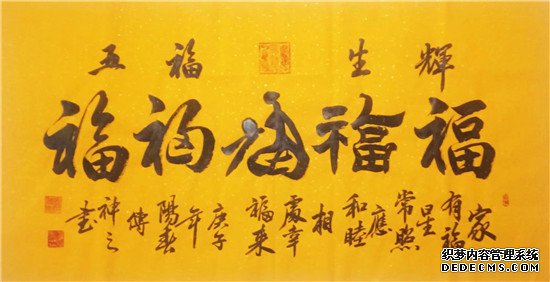 五福生輝
福福福福福
家
有福
星
常照
應
和睦
相
處幸
福来
庚子
年
陽春
傳
神之
书
织梦内容管理系统
DEDECMS.COM